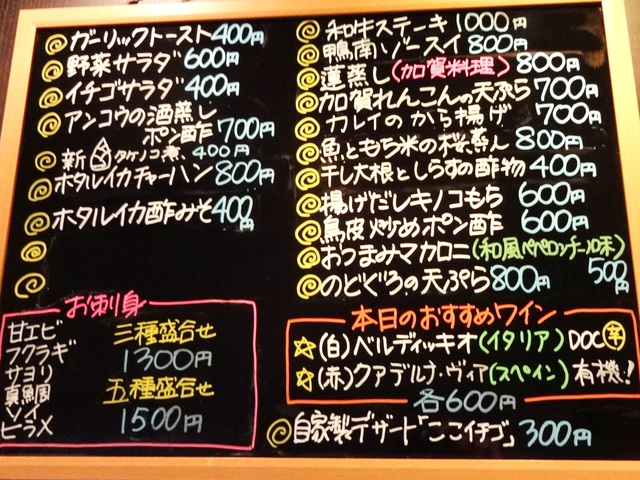 ガーリックトースト400円
野菜サラダ 600円
イチゴサラダ 400円
アンコウの酒蒸し
ポン酢 700円
新タケノコ煮 400円
ホタルイカチャーハン 800円
ホタルイカ酢みそ 400円
お刺身
甘エビ
フクラギ
サヨリ
真鯛
ソイ
ヒラメ
三種盛合せ
1300円
五種盛合せ
1500円
和牛ステーキ 1000円
鴨南ゾースイ 800円
蓮蒸し(加賀料理) 800円
加賀れんこんの天ぷら 700円
カレイのから揚げ 700円
魚ともち米の桜蒸し 800円
干し大根としらすの酢物 400円
揚げだしキノコもち 600円
鳥皮炒めポン酢 600円
おつまみマカロニ(和風ペペロンチーノ味) 500円
のどぐろの天ぷら 800円
本日のおすすめワイン
☆(白)ベルディッキオ(イタリア) DOC 辛
☆(赤)クァデルナ・ヴィア(スペイン) 有機!
各600円
自家製デザート「ここイチゴ」 300円